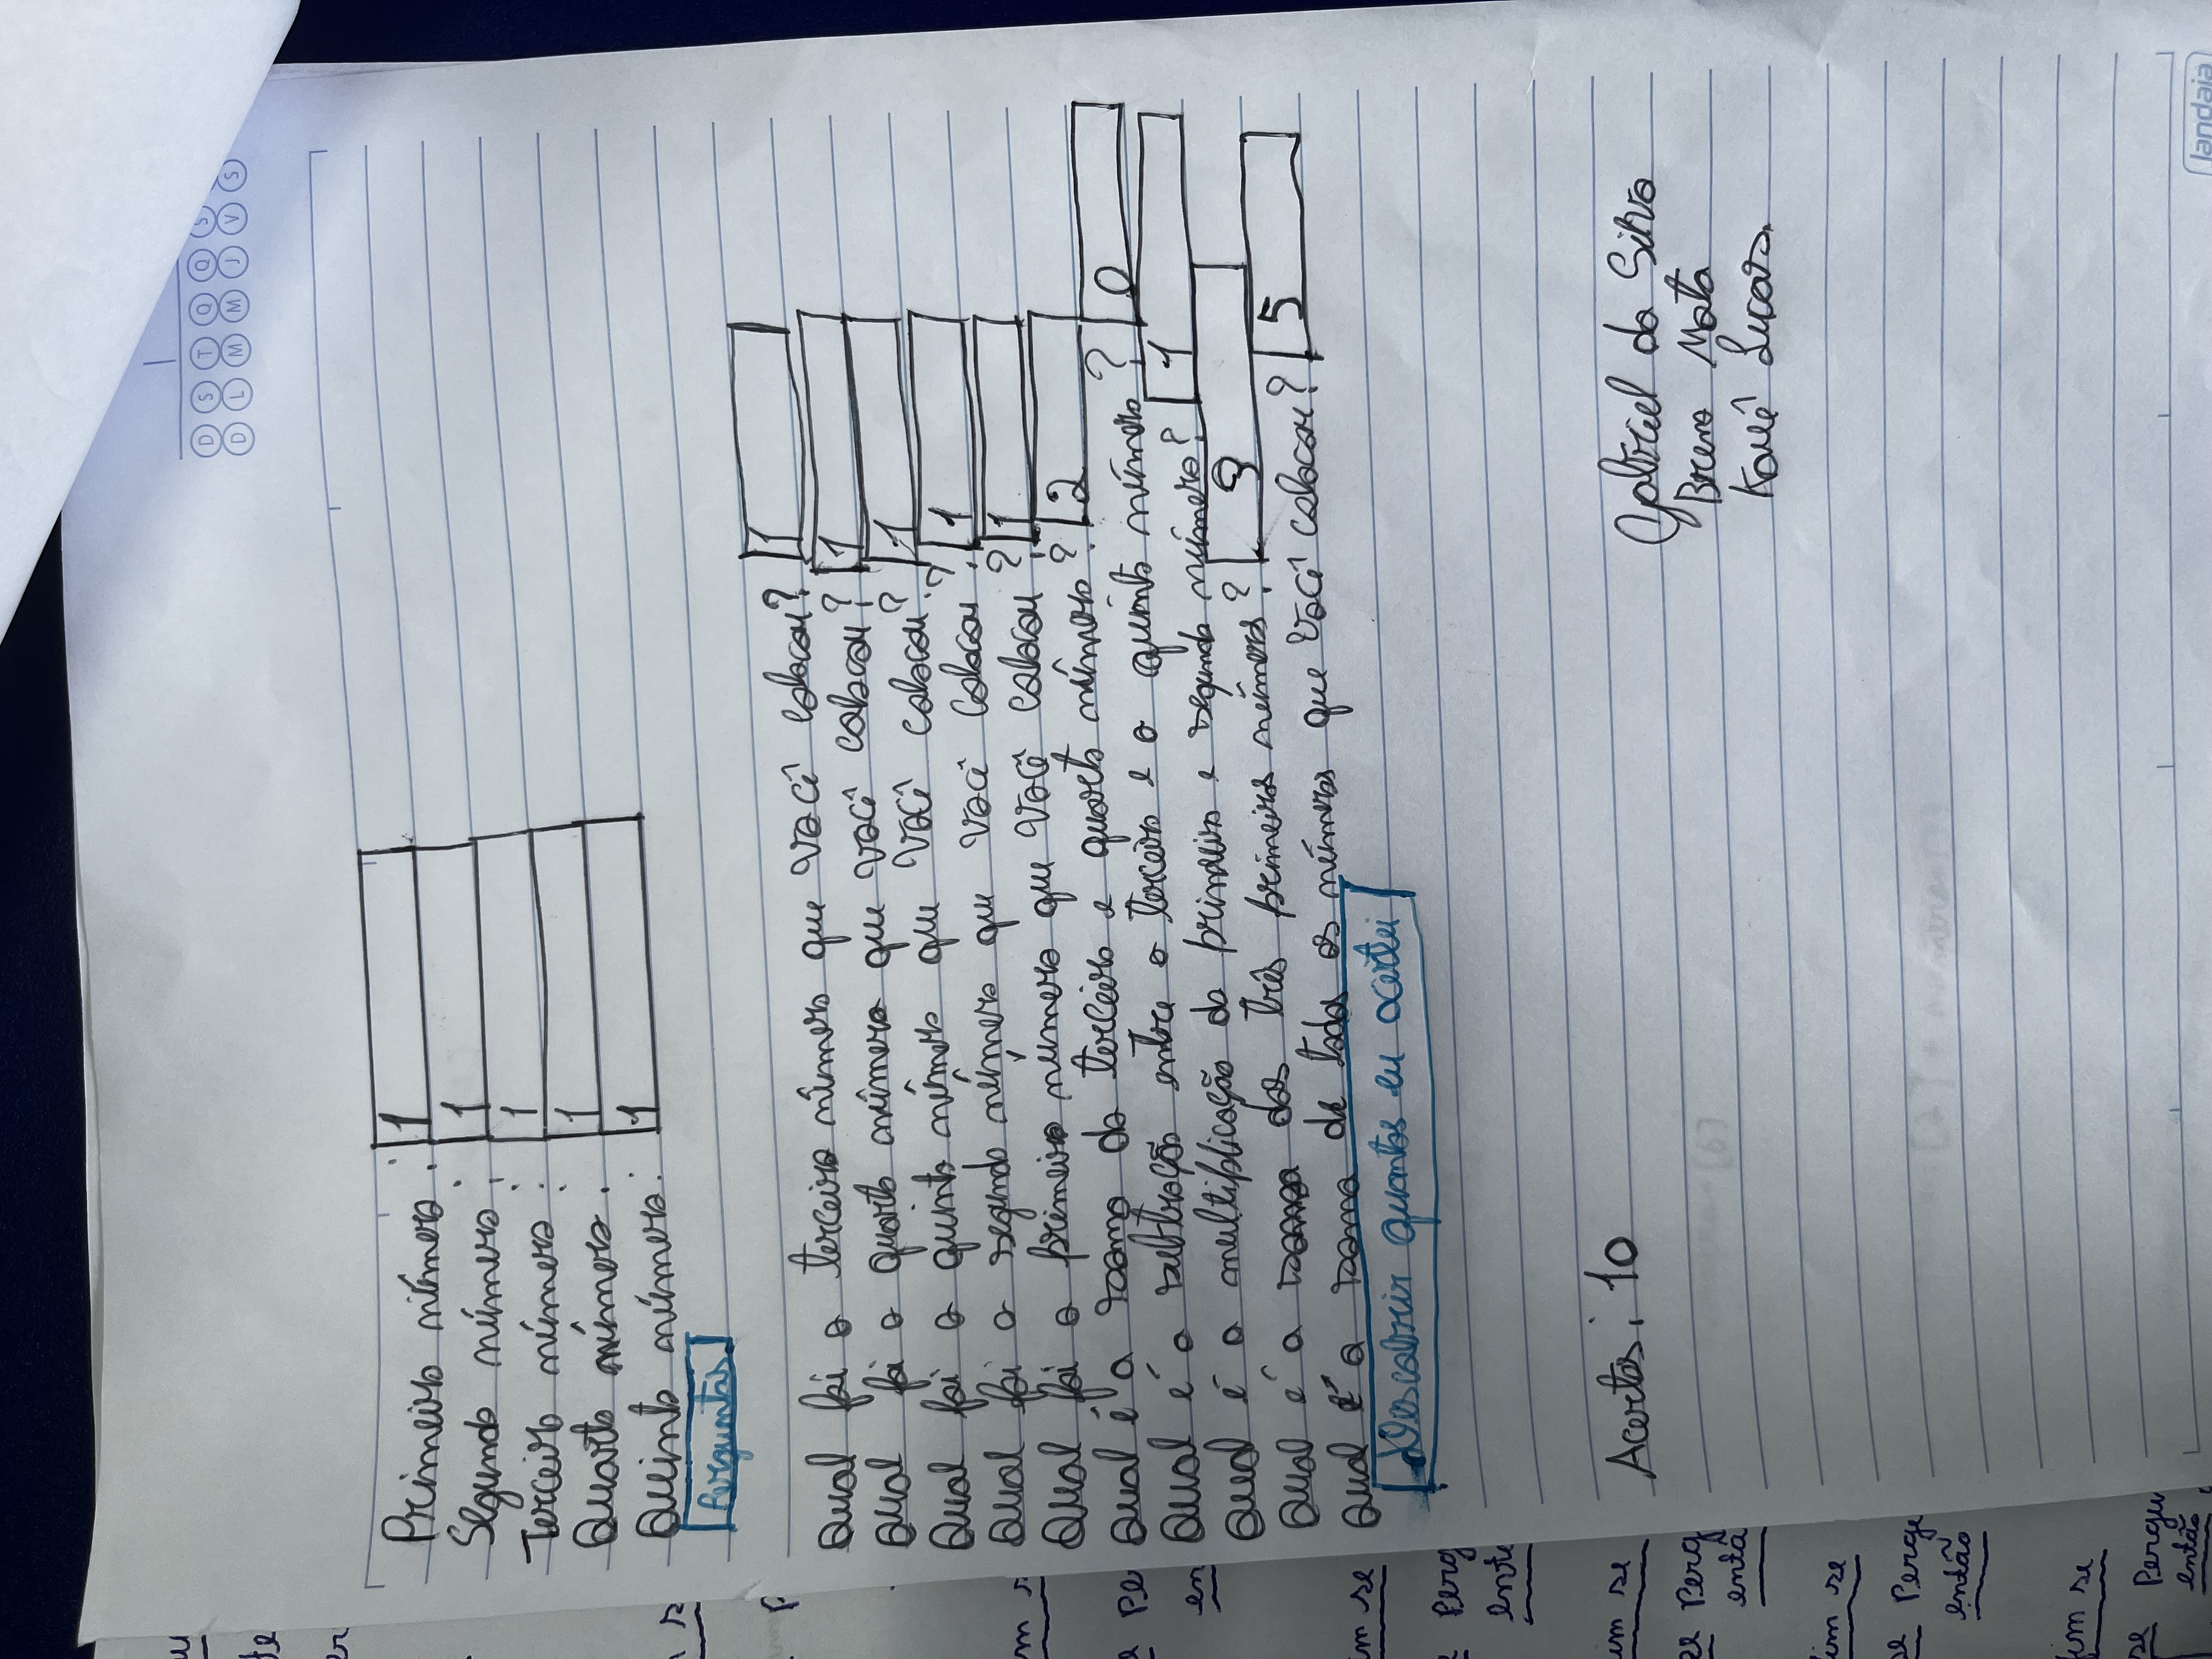 D S T Q Q S
D L M M J V S
Primeiro número: 1
Segundo número: 1
Terceiro número: 1
Quarto número: 1
Quinto número: 1
Perguntas
Qual foi o terceiro número que você colocou? 1
Qual foi o quarto número que você colocou? 1
Qual foi o quinto número que você colocou? 1
Qual foi o segundo número que você colocou? 1
Qual foi o primeiro número que você colocou? 1
Qual é a soma do terceiro e quarto número? 2
Qual é a subtração entre o terceiro e o quinto número? 0
Qual é a multiplicação do primeiro e segundo número? 1
Qual é a soma dos três primeiros números?
Qual é a soma de todos os números que você colocou? 5
Descobrir quantas eu acertei
Acertos: 10
Gabriel da Silva
Breno Mata
Kauê Lucas.
im se
Perg
então
im se
se Perge
então
fim se
se Pergu
então
landaia